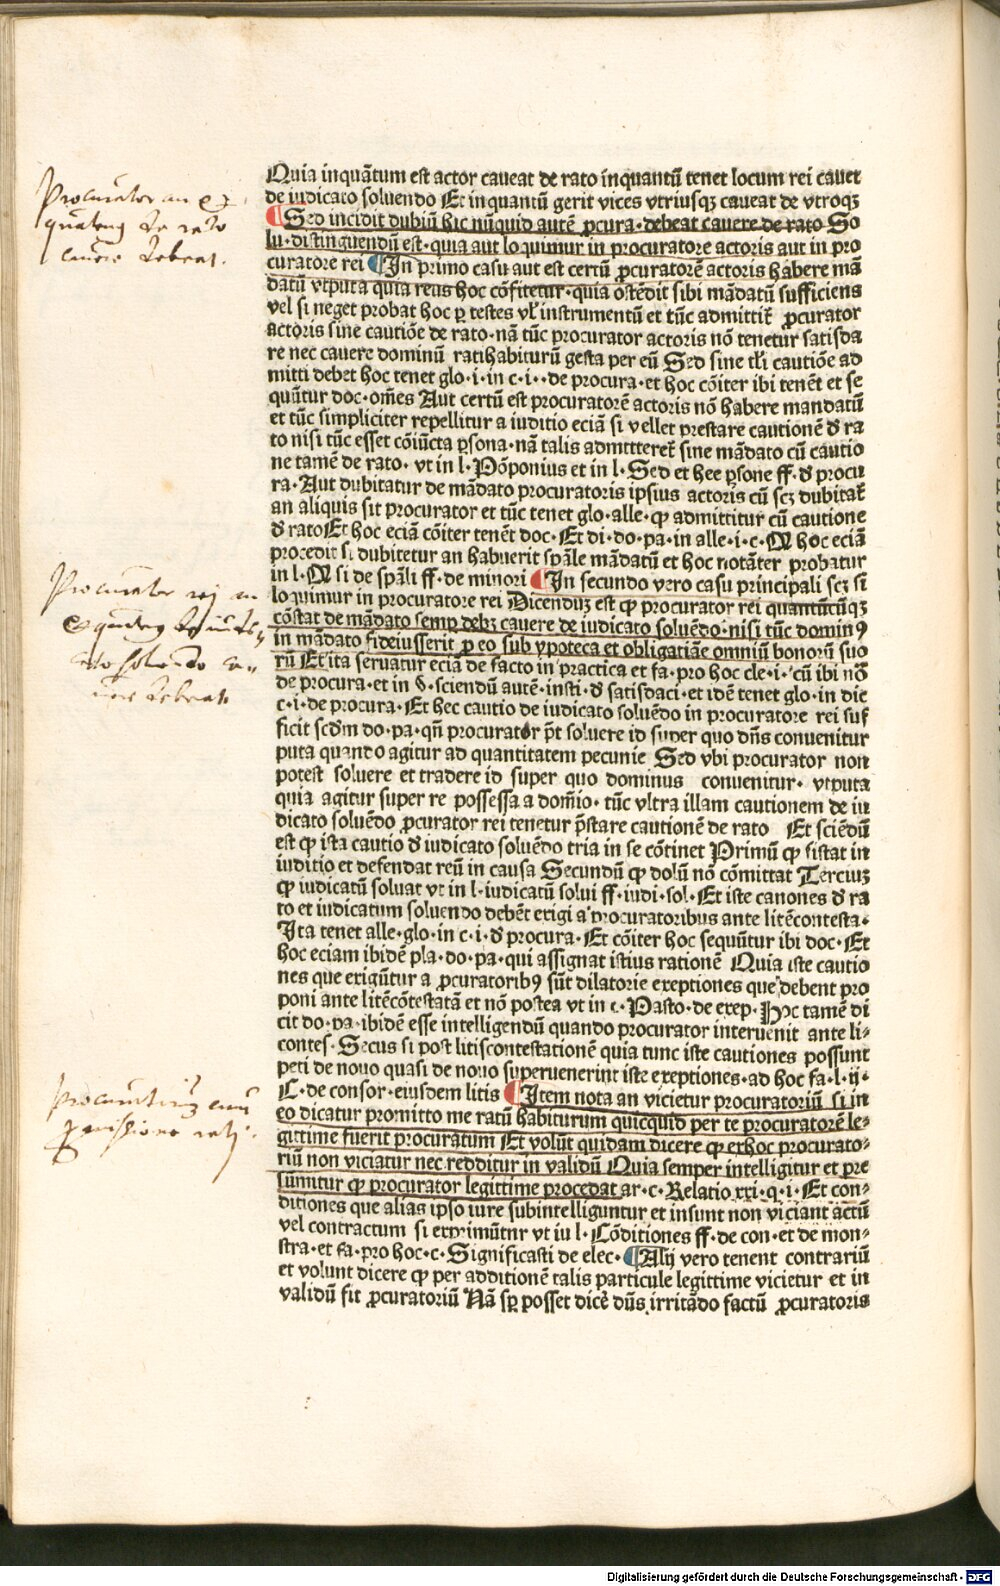 Quia inquãtum est actor caueat de rato inquantũ tenet locum rei cauet
de iudicato soluendo Et inquantũ gerit vices vtriusqȝ caueat de vtroqȝ
¶ Sed incidit dubiũ hic nũquid autẽ ꝓcura·debeat cauere de rato So
lu·distinguendũ est·quia aut loquimur in procuratore actoris aut in pro
curatore rei ¶ In primo casu aut est certũ ꝓcuratorẽ actoris habere mã
datũ vtputa quia reus hoc cõfitetur·quia ostẽdit sibi mãdatũ sufficiens
vel si neget probat hoc ꝑ testes vl̓ instrumentũ et tũc admittit̃ ꝓcurator
actoris sine cautiõe de rato·nã tũc procurator actoris nõ tenetur satisda
re nec cauere dominũ ratihabiturũ gesta per eũ Sed sine tl̓i cautiõe ad
mitti debet hoc tenet glo·i·in c·i··de procura·et hoc cõiter ibi tenẽt et se
quũtur doc·om̃es Aut certũ est procuratorẽ actoris nõ habere mandatũ
et tũc simpliciter repellitur a iuditio eciã si vellet prestare cautionẽ d̓ ra
to nisi tũc esset cõiũcta ꝑsona·nã talis admttteret̃ sine mãdato cũ cautio
ne tamẽ de rato· vt in l·Põponius et in l·Sed et hee ꝑsone ff·d̓ procu
ra·Aut dubitatur de mãdato procuratoris ipsius actoris cũ scȝ dubitat̃
an aliquis sit procurator et tũc tenet glo·alle·ꝙ admittitur cũ cautione
d̓ rato Et hoc eciã cõiter tenẽt doc·Et di·do·pa·in alle·i·c·ꝙ hoc eciã
procedit si dubitetur an habuerit spãle mãdatũ et hoc notãter probatur
in l·ꝙ si de spãli ff·de minori ¶ In secundo vero casu principali scȝ si
loquimur in procuratore rei Dicenduȝ est ꝙ procurator rei quantũcũqȝ
cõstat de mãdato semꝑ debȝ cauere de iudicato soluẽdo·nisi tũc dominꝰ
in mãdato fideiusserit ꝓ eo sub ypoteca et obligatiãe omniũ bonorũ suo
rũ Et ita seruatur eciã de facto in practica et fa·pro hoc cle·i·cũ ibi nõ
de procura·et in §·sciendũ autẽ·insti·d̓ satisdaci·et idẽ tenet glo·in dic
c·i·de procura·Et hec cautio de iudicato soluẽdo in procuratore rei suf
ficit scd̃m do·pa·qñ procurator p̃t soluere id super quo dñs conuenitur
puta quando agitur ad quantitatem pecunie Sed vbi procurator non
potest soluere et tradere id super quo dominus conuenitur· vtputa
quia agitur super re possessa a dom̃io·tũc vltra illam cautionem de iu
dicato soluẽdo ꝓcurator rei tenetur p̃stare cautionẽ de rato Et sciẽdũ
est ꝙ ista cautio d̓ iudicato soluẽdo tria in se cõtinet Primũ ꝙ sistat in
iuditio et defendat reũ in causa Secundũ ꝙ dolũ nõ cõmittat Terciuȝ
ꝙ iudicatũ soluat vt in l·iudicatũ solui ff·iudi·sol·Et iste canones d̓ ra
to et iudicatum soluendo debẽt exigi a procuratoribus ante litẽcontesta·
Ita tenet alle·glo·in c·i·d̓ procura·Et cõiter hoc sequũtur ibi doc·Et
hoc eciam ibidẽ pla·do·pa·qui assignat istius rationẽ Quia iste cautio
nes que exigũtur a ꝓcuratoribꝰ sũt dilatorie exeptiones que debent pro
poni ante litẽcõtestatã et nõ postea vt in c·Pasto·de exep·Hoc tamẽ di
cit do·pa·ibidẽ esse intelligendũ quando procurator interuenit ante li⸗
contes·Secus si post litiscontestationẽ quia tunc iste cautiones possunt
peti de nouo quasi de nouo superuenerint iste exeptiones·ad hoc fa·l·ij·
C·de consor·eiusdem litis ¶ Item nota an vicietur procuratoriũ si in
eo dicatur promitto me ratũ habiturum quicquid per te procuratorẽ le⸗
gittime fuerit procuratum Et volũt quidam dicere ꝙ exhoc procurato⸗
riũ non viciatur nec redditur in validũ Quia semper intelligitur et pre
sumitur ꝙ procurator legittime procedat ar·c·Relatio xxi·q·i·Et con⸗
ditiones que alias ipso iure subintelliguntur et insunt non viciant actũ
vel contractum si exprimũtur vt iu l·Cõditiones ff·de con·et de mon⸗
stra·et fa·pro hoc·c·Significasti de elec· ¶ Alij vero tenent contrariũ
et volunt dicere ꝙ per additionẽ talis particule legittime vicietur et in
validũ fit ꝓcuratoriũ Nã sꝑ posset dicẽ dũs irritãdo factũ ꝓcuratoris
Procurator an et
quatenus de rato
cauere debeat.
Procurator rei an
et quatenus de iudi-
cato soluendo ca-
uere debeat
Procuratorium cum
promissione rati.
Digitalisierung gefördert durch die Deutsche Forschungsgemeinschaft - DFG